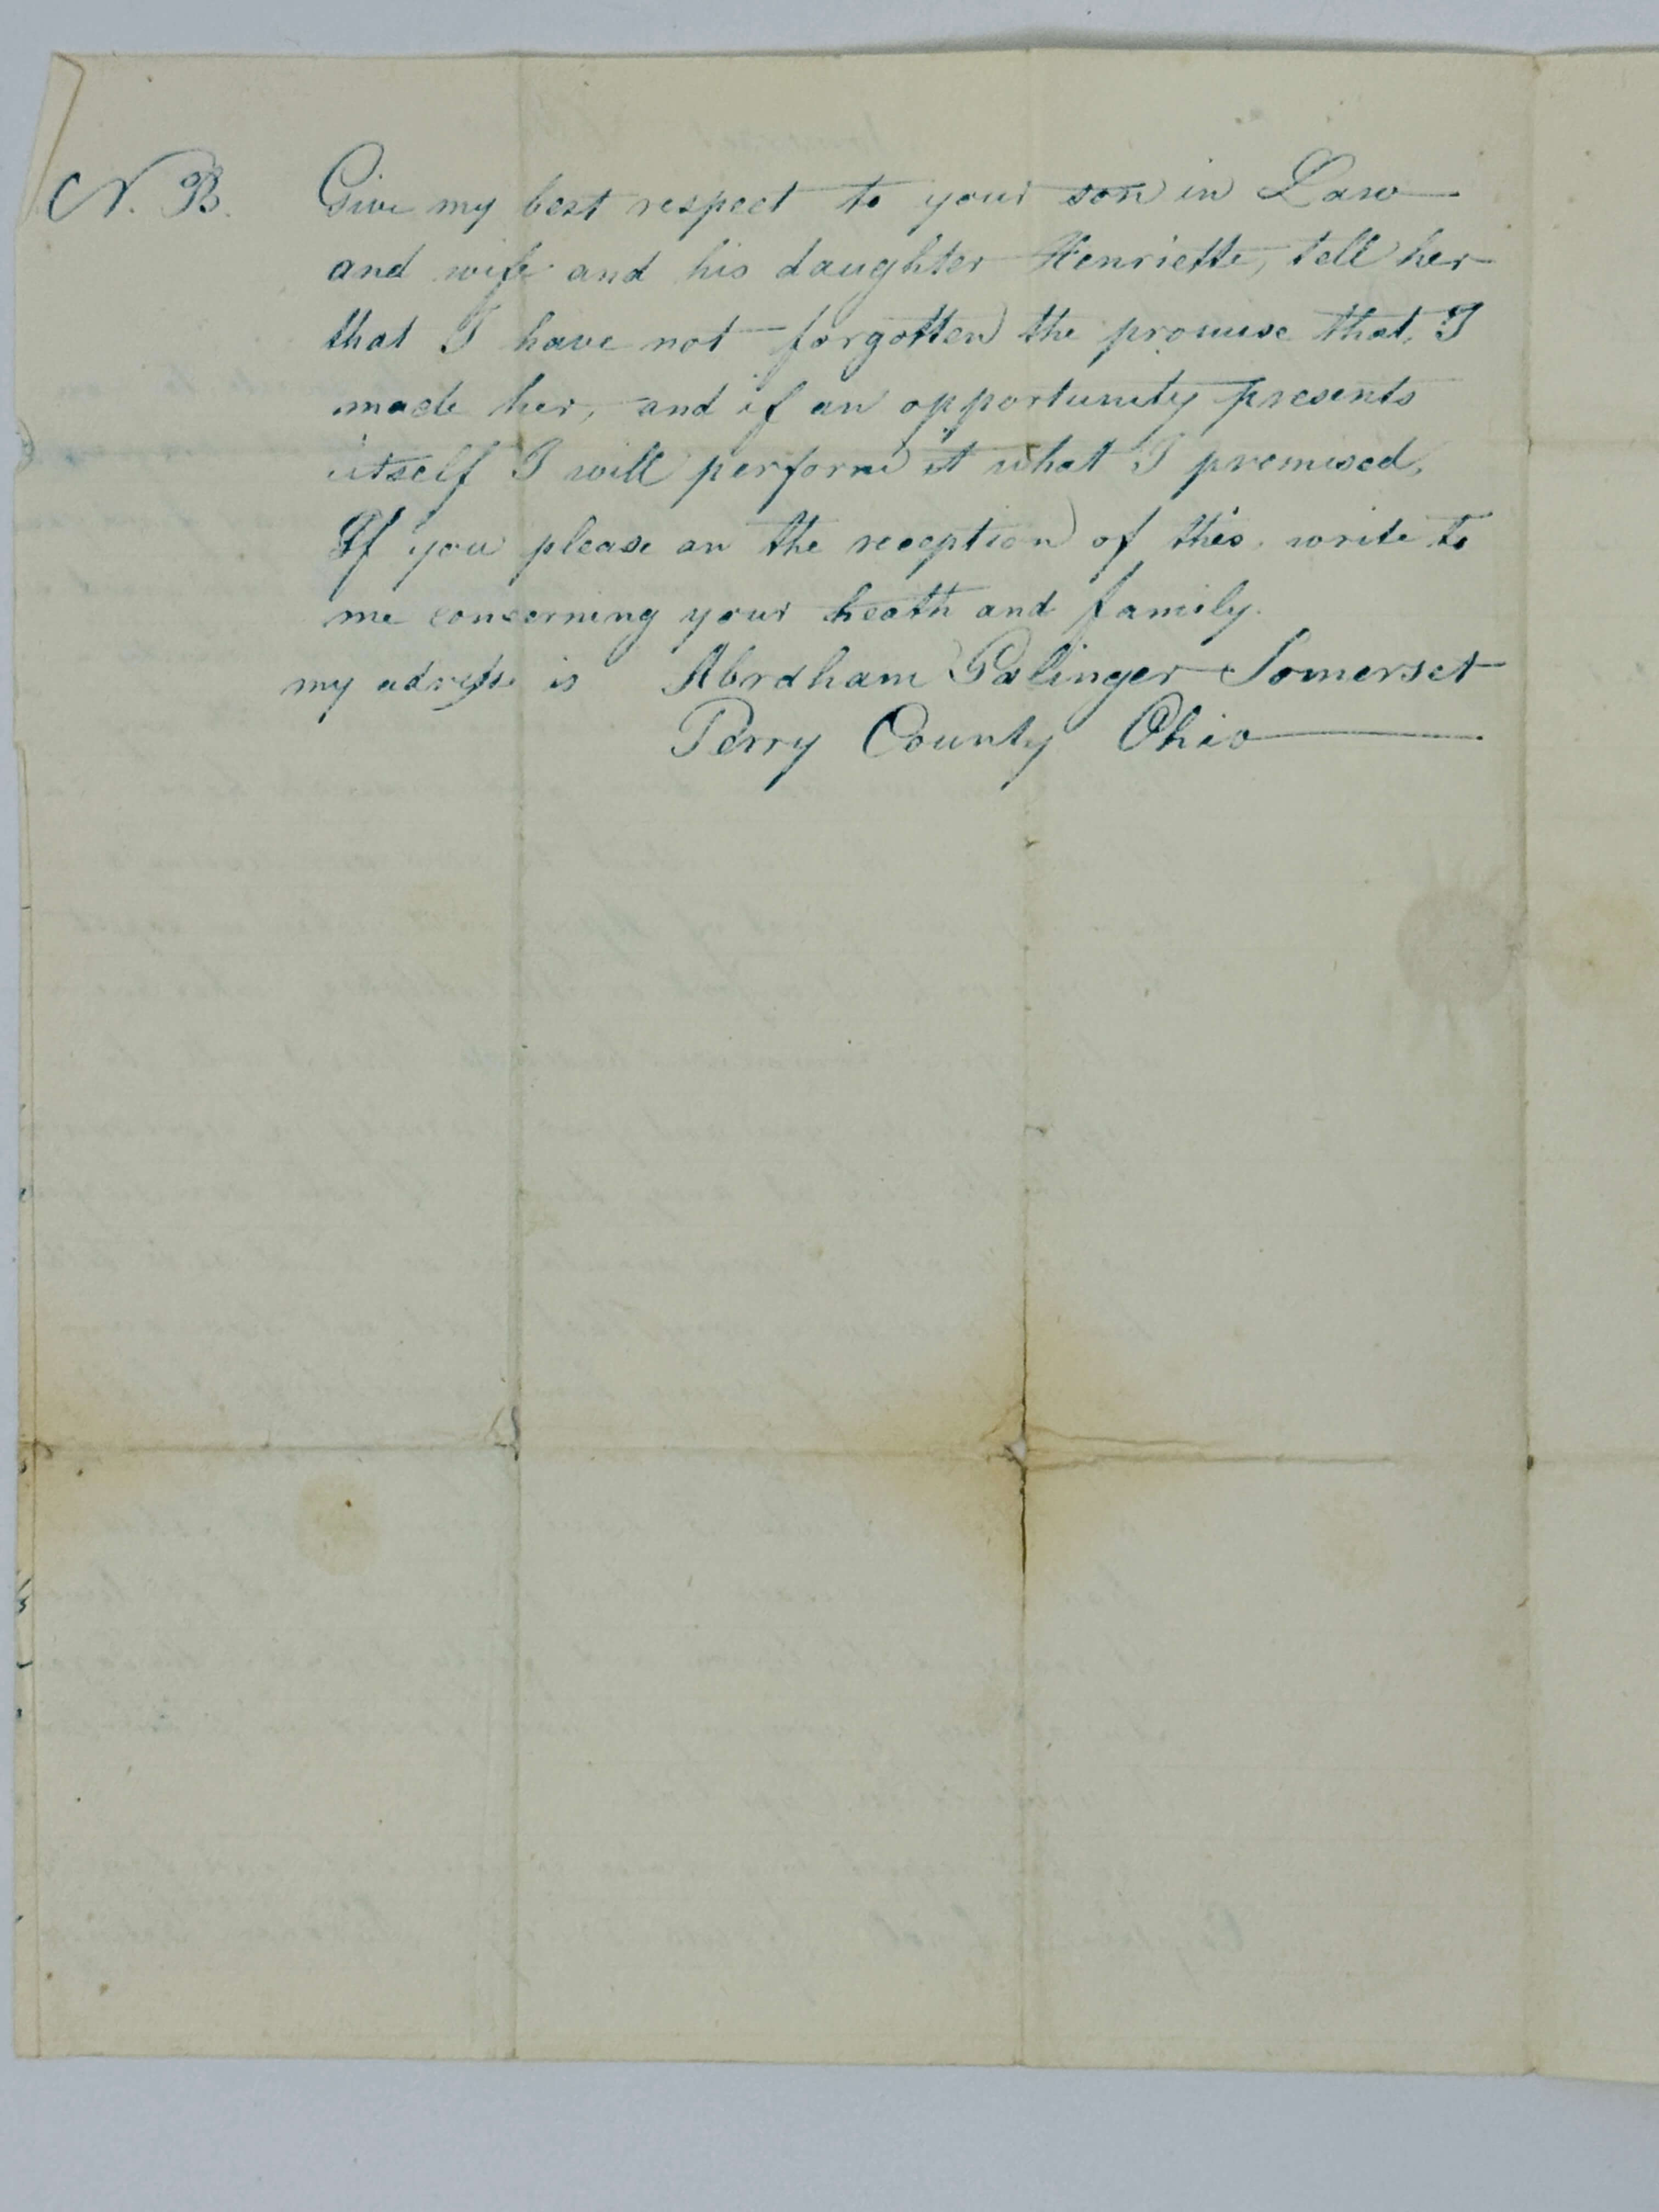 N. B. Give my best respect to your son in Law
and wife and his daughter Henriette, tell her
that I have not forgotten the promise that, I
made her, and if an opportunity presents
itself I will perform it what I promised,
If you please on the reception of this, write to
me concerning your heath and family.
my adress is Abraham Palinger Somerset
Perry County Ohio